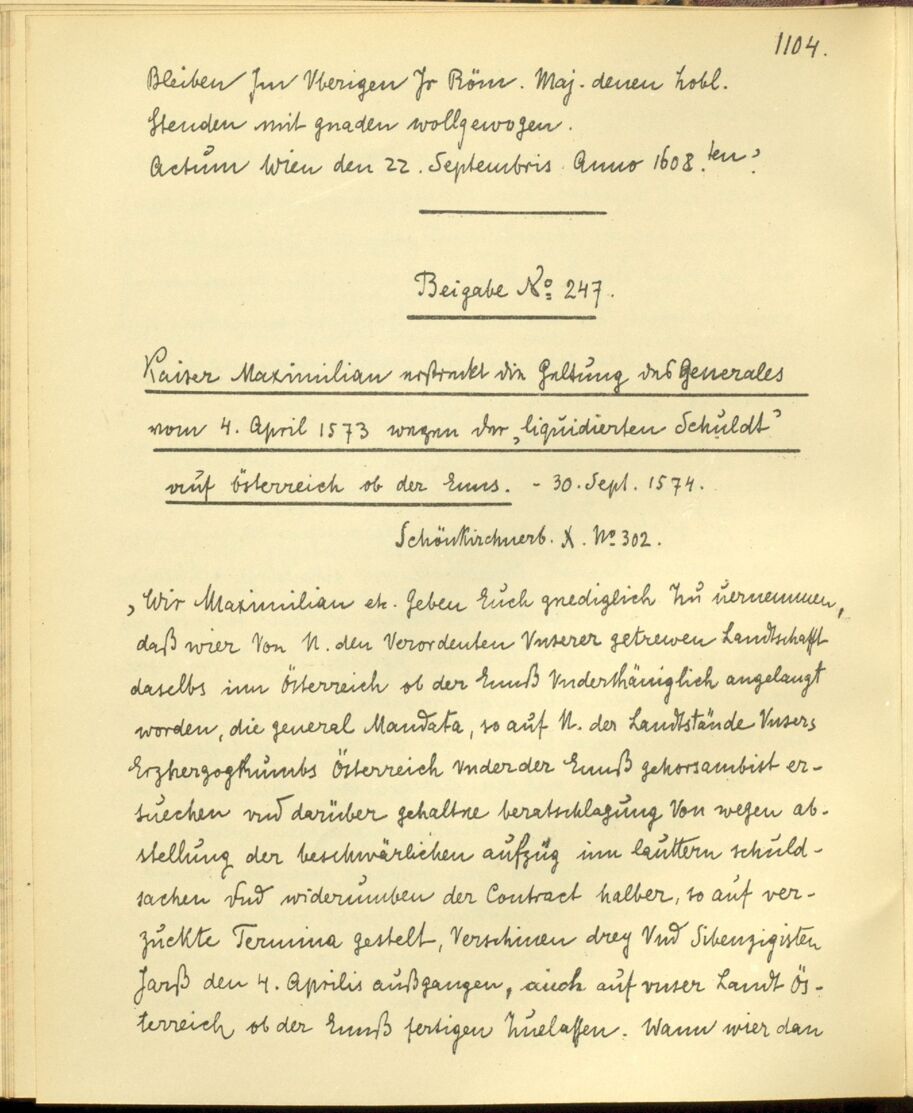 1104.
Bleiben Jm Vberigen Jr Röm. Maj. denen Lobl.
Stenden mit gnaden wollgewogen.
Actum Wien den 22. Septembris Anno 1608.ten
Beigabe No. 247.
Kaiser Maximilian erstreckt die Geltung des Generales
vom 4. April 1573 wegen der „liquidierten Schuldt"
auf Österreich ob der Enns. - 30. Sept. 1574.
Schönkirchnerb. X. No 302.
„Wir Maximilian etc. Geben Euch gnediglich Zu uernemmen,
daß wier Von N. den Verordenten Vnserer getrewen Landtschafft
daselbs inn Österreich ob der Ennß Vnderthäniglich angelangt
worden, die general Mandata, so auf N. der Landtstände Vnsers
Erzherzogthumbs Österreich vnder der Ennß gehorsambist er-
suechen vnd darüber gehaltne beratschlagung Von wegen ab-
stellung der beschwärlichen aufzüg inn lauttern schuld-
sachen Vnd widerumben der Contract halber, so auf ver-
zuckte Termina gestelt, Verschinen drey Vnd Sibenzigisten
Jarß den 4. Aprilis außgangen, auch auf vnser Landt Ös-
terreich ob der Ennß fertigen Zuelassen. Wann wier dan